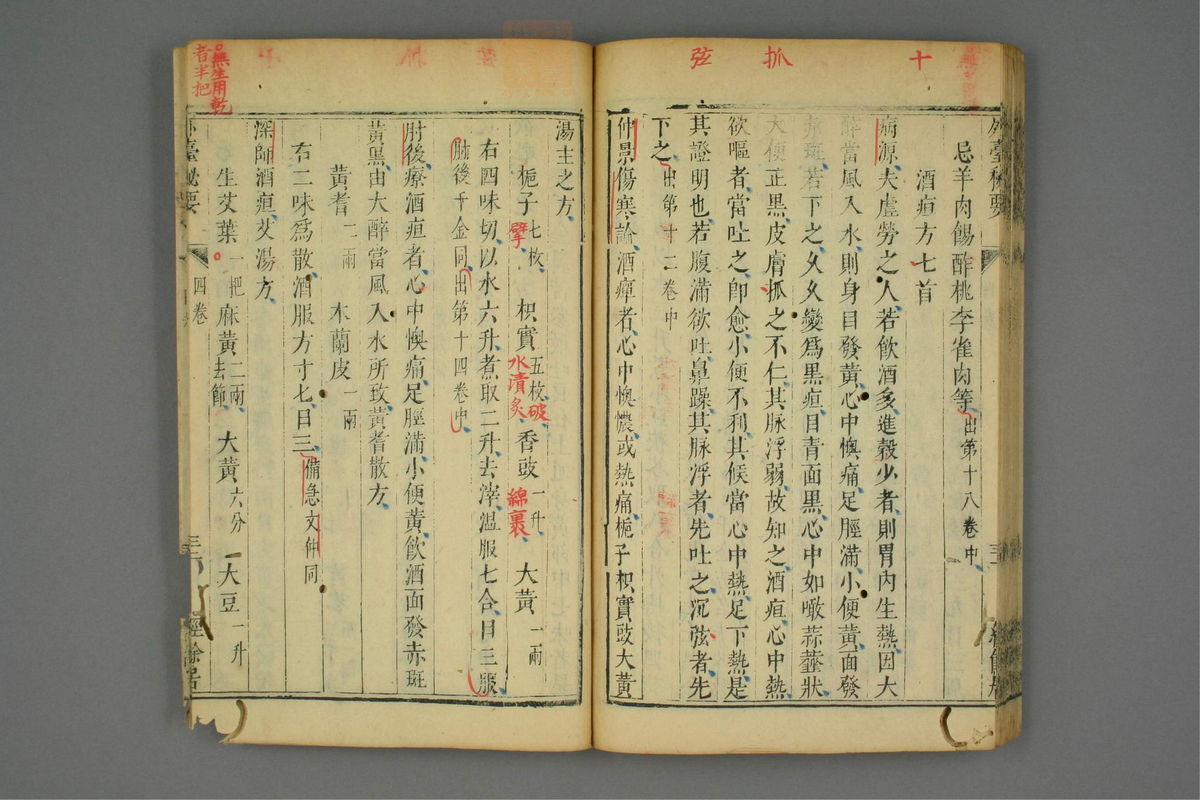 十
抓
弦
外臺秘要
忌羊肉餳酢桃李雀肉等出第十八卷中
酒疸方七首
病源夫虛勞之人若飲酒多進穀少者則胃內生熱因大
醉當風入水則身目發黃心中懊痛足脛滿小便黃面發
赤斑若下之久久變爲黑疸目青面黑心中如噉蒜虀狀
大便正黑皮膚抓之不仁其脉浮弱故知之酒疸心中熱
欲嘔者當吐之卽愈小便不利其候當心中熱足下熱是
其證明也若腹滿欲吐鼻躁其脉浮者先吐之沉弦者先
下之出第十二卷中
仲景傷寒論酒癉者心中懊憹或熱痛梔子枳實豉大黃
湯主之方
梔子七枚擘 枳實五枚破水漬炙 香豉一升綿裹 大黃一兩
右四味切以水六升煮取二升去滓溫服七合日三服
肘後千金同出第十四卷中
肘後療酒疸者心中懊痛足脛滿小便黃飲酒面發赤斑
黃黑由大醉當風入水所致黃耆散方
黃耆二兩 木蘭皮一兩
右二味爲散酒服方寸匕日三備急文仲同
深師酒疸艾湯方
生艾葉一把 麻黃二兩去節 大黃六分 大豆一升
無生用乾者半把
外臺秘要
四卷
三
經餘居